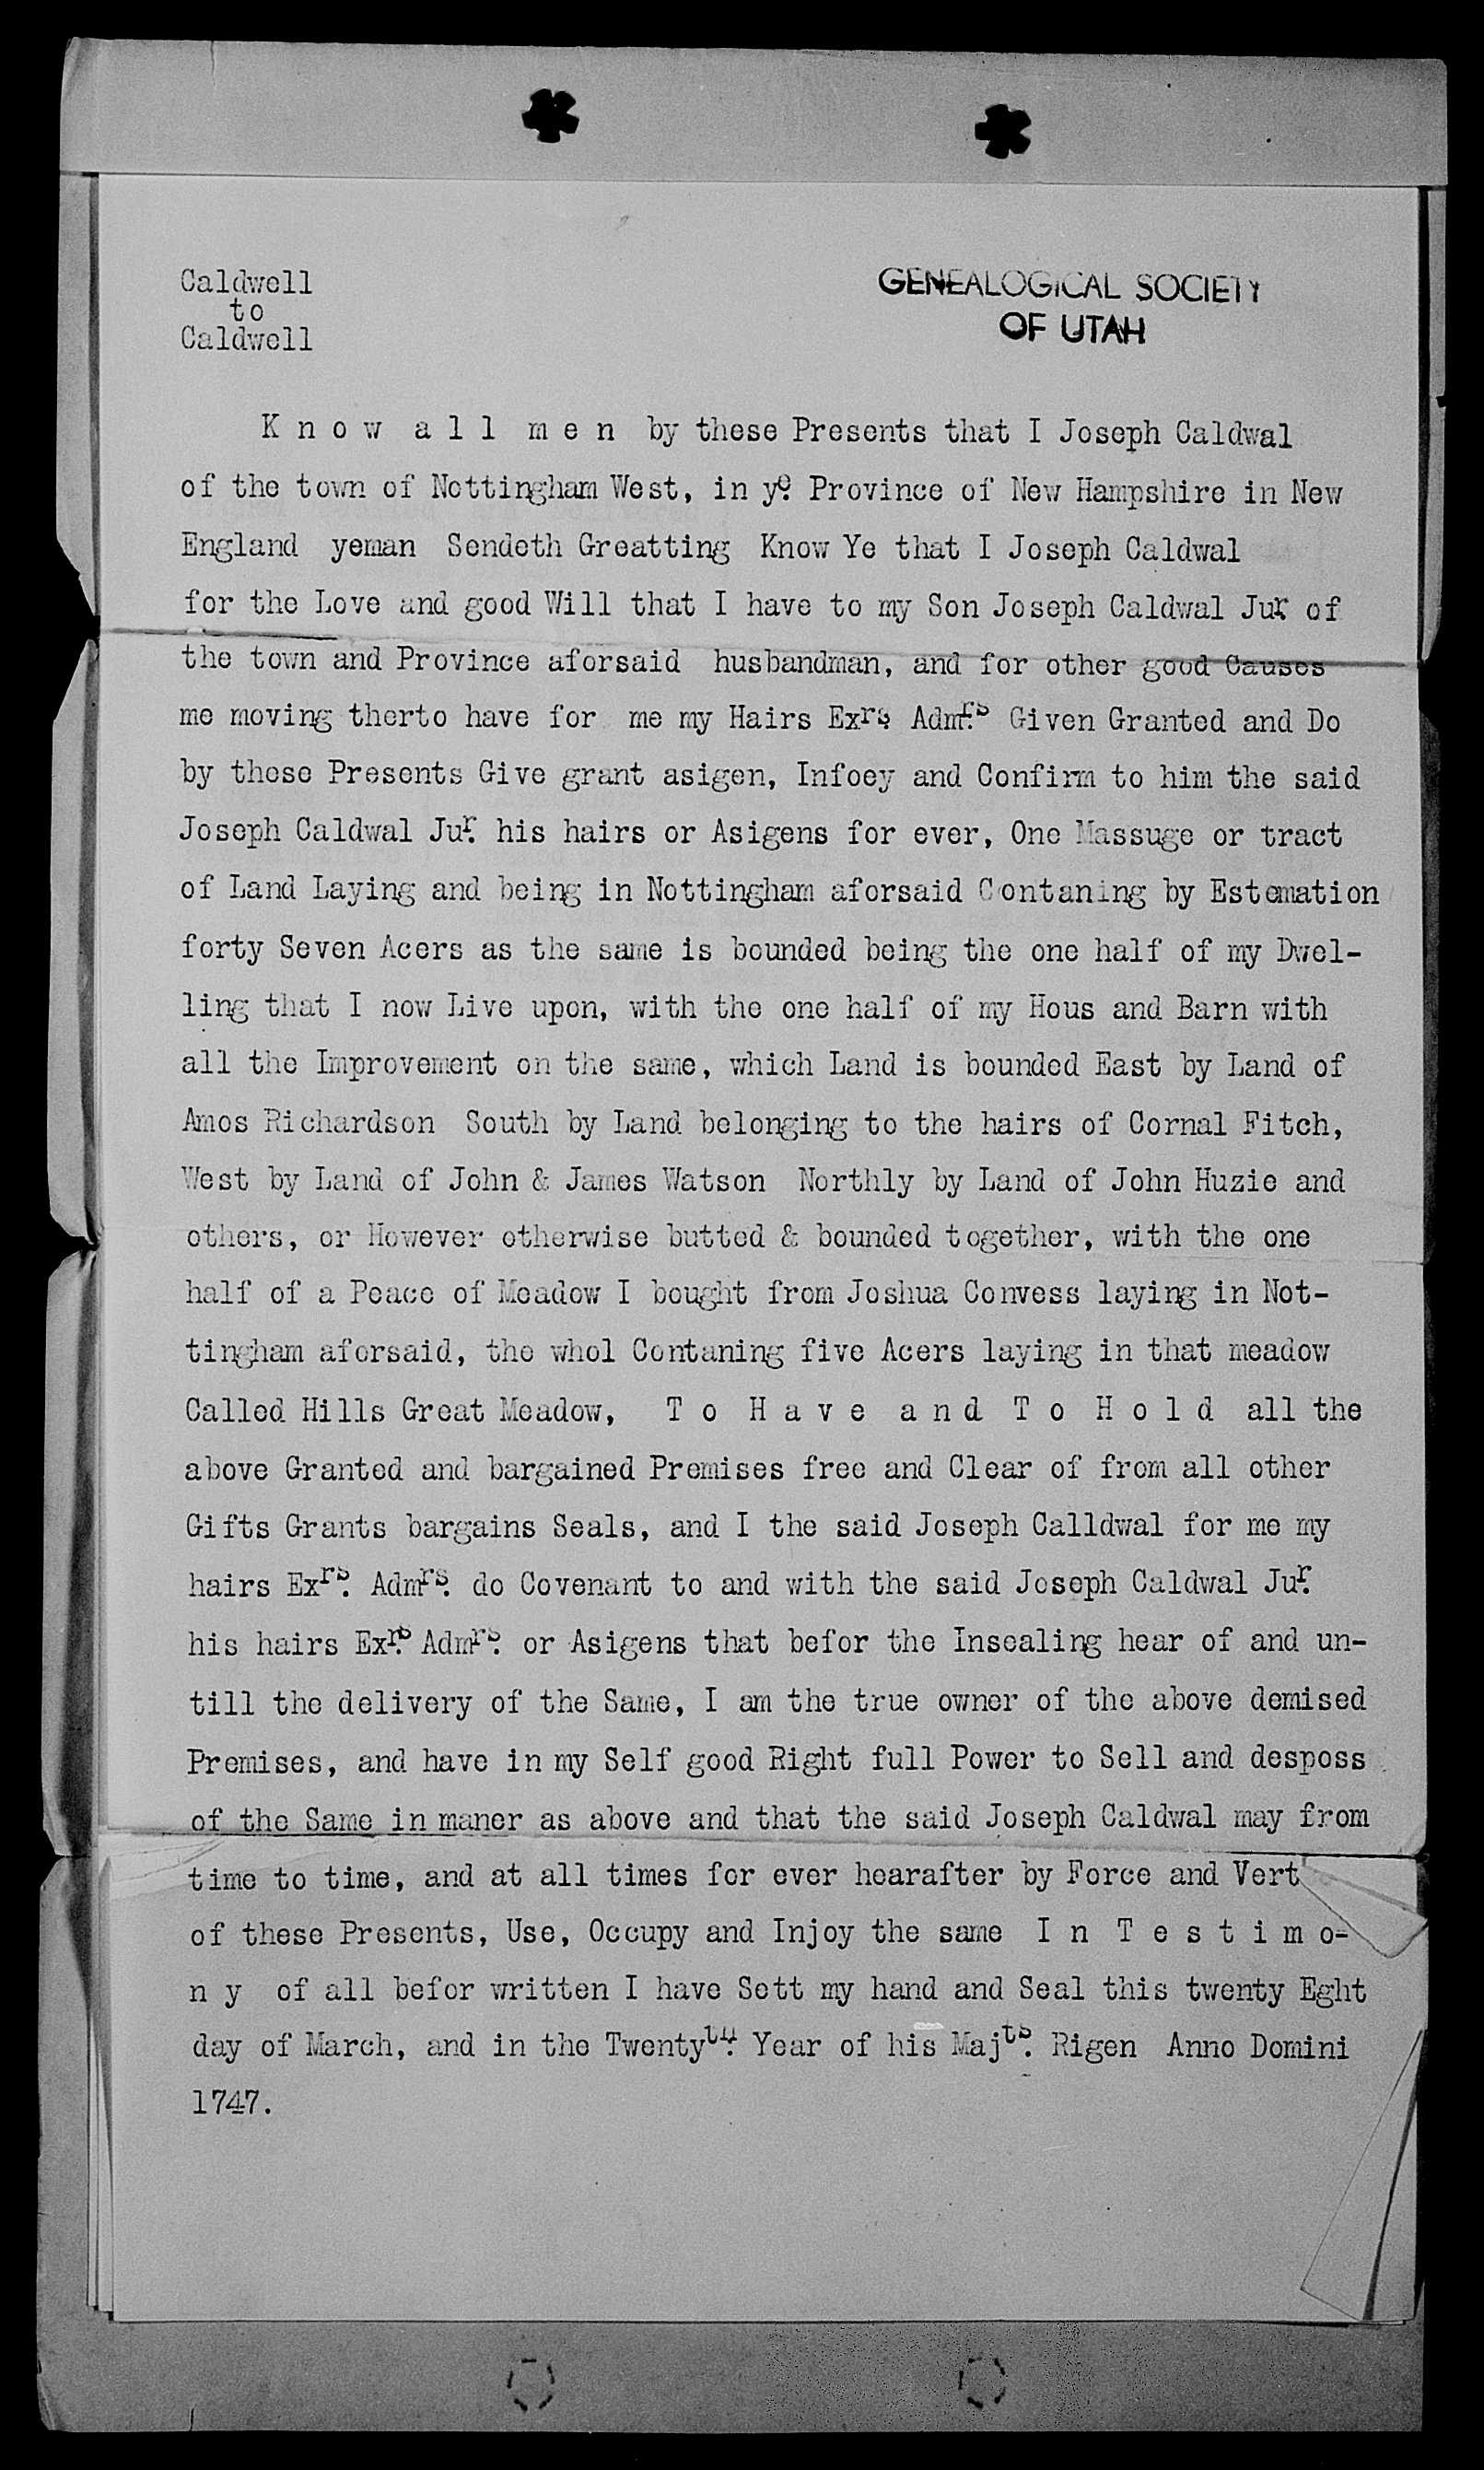 Caldwell
to
Caldwell
GENEALOGICAL SOCIETY
OF UTAH
K n o w a l l m e n by these Presents that I Joseph Caldwal
of the town of Nottingham West, in ye. Province of New Hampshire in New
England yeman Sendeth Greatting Know Ye that I Joseph Caldwal
for the Love and good Will that I have to my Son Joseph Caldwal Jur. of
the town and Province aforsaid husbandman, and for other good Causes
me moving therto have for me my Hairs Exrs. Admrs. Given Granted and Do
by these Presents Give grant asigen, Infoey and Confirm to him the said
Joseph Caldwal Jur. his hairs or Asigens for ever, One Massuge or tract
of Land Laying and being in Nottingham aforsaid Contaning by Estemation
forty Seven Acers as the same is bounded being the one half of my Dwel-
ling that I now Live upon, with the one half of my Hous and Barn with
all the Improvement on the same, which Land is bounded East by Land of
Amos Richardson South by Land belonging to the hairs of Cornal Fitch,
West by Land of John & James Watson Northly by Land of John Huzie and
others, or However otherwise butted & bounded together, with the one
half of a Peace of Meadow I bought from Joshua Convess laying in Not-
tingham aforsaid, the whol Contaning five Acers laying in that meadow
Called Hills Great Meadow, T o H a v e a n d T o H o l d all the
above Granted and bargained Premises free and Clear of from all other
Gifts Grants bargains Seals, and I the said Joseph Calldwal for me my
hairs Exrs. Admrs. do Covenant to and with the said Joseph Caldwal Jur.
his hairs Exrs. Admrs. or Asigens that befor the Insealing hear of and un-
till the delivery of the Same, I am the true owner of the above demised
Premises, and have in my Self good Right full Power to Sell and desposs
of the Same in maner as above and that the said Joseph Caldwal may from
time to time, and at all times for ever hearafter by Force and Vert
of these Presents, Use, Occupy and Injoy the same I n T e s t i m o-
n y of all befor written I have Sett my hand and Seal this twenty Eght
day of March, and in the Twentyth. Year of his Majts. Rigen Anno Domini
1747.